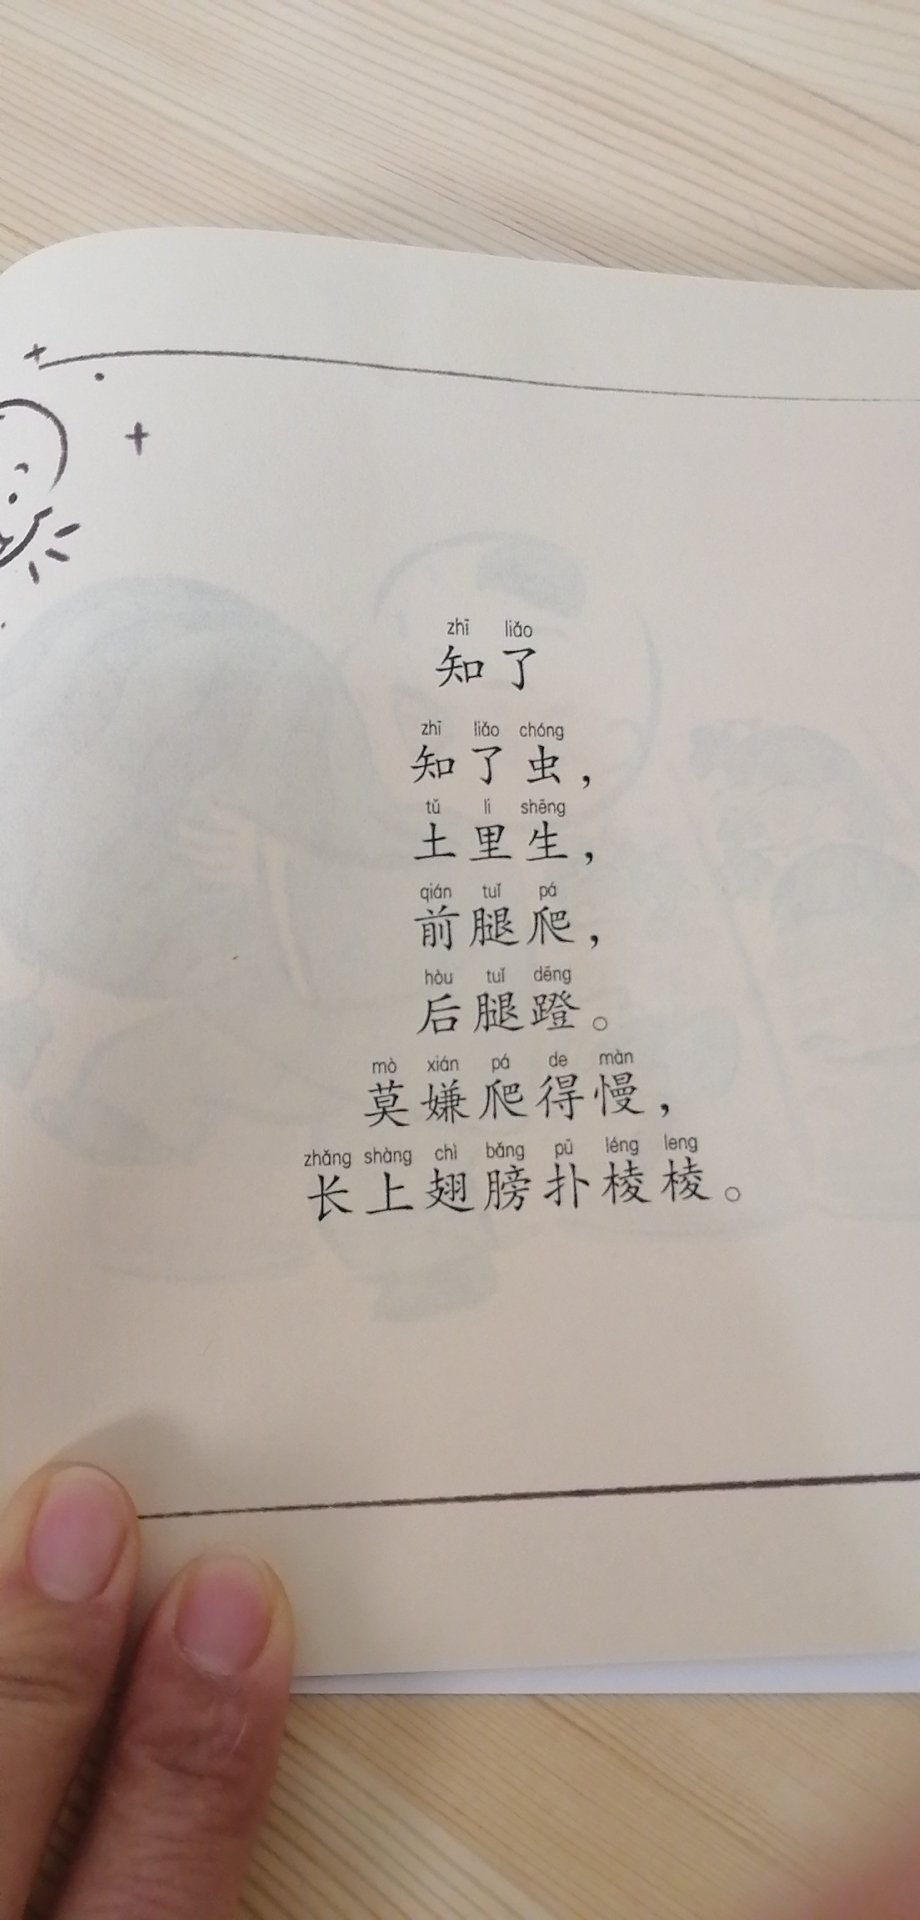 zhī liǎo
知了
zhī liǎo chóng
知了虫，
tǔ li shēng
土里生，
qián tuǐ pá
前腿爬，
hòu tuǐ dēng
后腿蹬。
mò xián pá de màn
莫嫌爬得慢，
zhǎng shàng chì bǎng pū léng leng
长上翅膀扑棱棱。